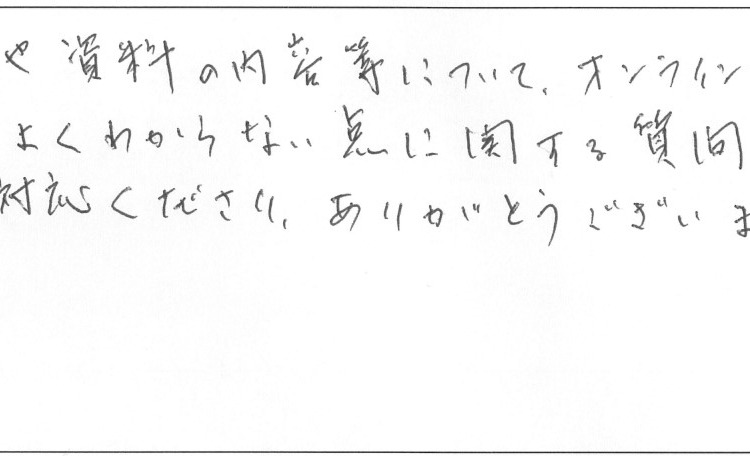 や資料の内容等について、オンライン
よくわからない点に関する質問
対応くださり、ありがとうございま